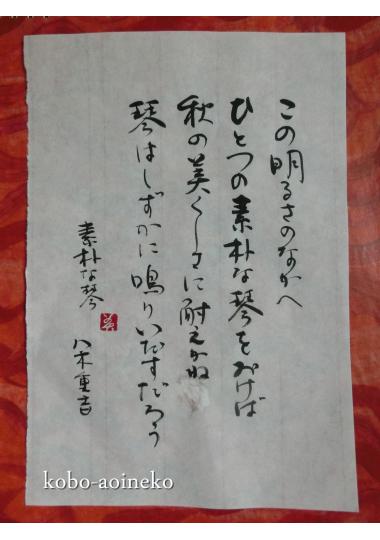 この明るさのなかへ
ひとつの素朴な琴をおけば
秋の美くしさに耐えかね
琴はしずかに鳴りいだすだろう
素朴な琴
八木重吉
kobo-aoineko